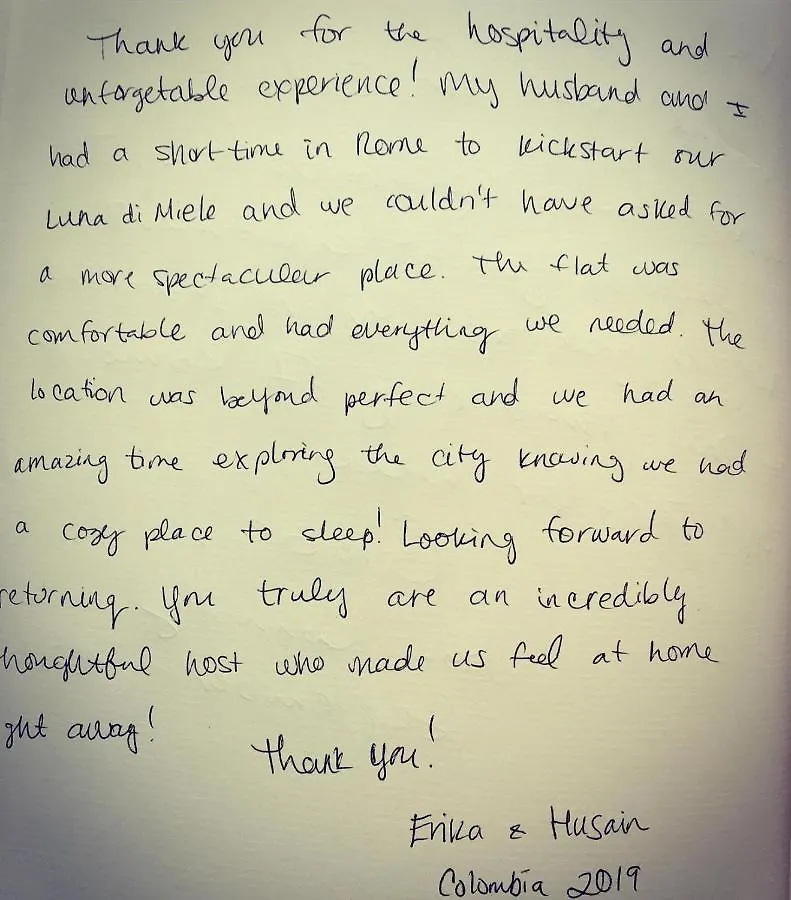 Thank you for the hospitality and
unforgetable experience! My husband and I
had a short time in Rome to kickstart our
Luna di Miele and we couldn't have asked for
a more spectacular place. The flat was
comfortable and had everything we needed. The
location was beyond perfect and we had an
amazing time exploring the city knowing we had
a cozy place to sleep! Looking forward to
returning. You truly are an incredibly
houghtful host who made us feel at home
ght away!
Thank you!
Erika & Husain
Colombia 2019